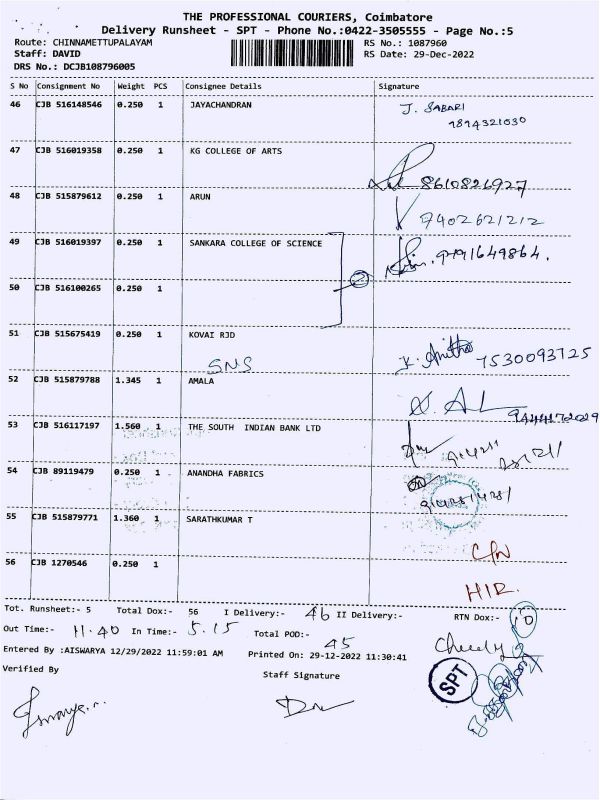 THE PROFESSIONAL COURIERS, Coimbatore
Delivery Runsheet - SPT - Phone No.:0422-3505555 - Page No.:5
Route: CHINNAMETTUPALAYAM RS No.: 1087960
Staff: DAVID RS Date: 29-Dec-2022
DRS No.: DCJB108796005
S No Consignment No Weight PCS Consignee Details Signature
46 CJB 516148546 0.250 1 JAYACHANDRAN J. SABARI
9894321030
47 CJB 516019358 0.250 1 KG COLLEGE OF ARTS
8610826927
48 CJB 515879612 0.250 1 ARUN
7402621212
49 CJB 516019397 0.250 1 SANKARA COLLEGE OF SCIENCE
9791649864.
50 CJB 516100265 0.250 1
51 CJB 515675419 0.250 1 KOVAI RJD
SNS K. Anitha 7530093725
52 CJB 515879788 1.345 1 AMALA
53 CJB 516117197 1.560 1 THE SOUTH INDIAN BANK LTD
54 CJB 89119479 0.250 1 ANANDHA FABRICS
55 CJB 515879771 1.360 1 SARATHKUMAR T
C/N
56 CJB 1270546 0.250 1
HIR.
Tot. Runsheet:- 5 Total Dox:- 56 I Delivery:- 46 II Delivery:- RTN Dox:- 10
Out Time:- 11.40 In Time:- 5.15 Total POD:- 45
Entered By :AISWARYA 12/29/2022 11:59:01 AM Printed On: 29-12-2022 11:30:41
Verified By Staff Signature
SPT